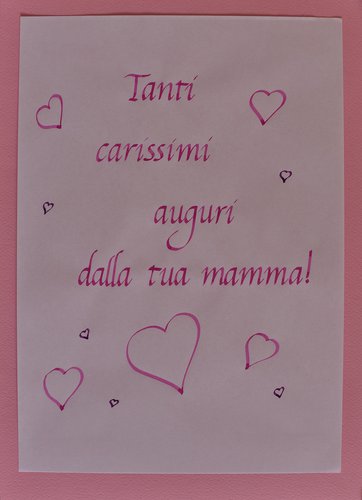 Tanti
carissimi
auguri
dalla tua mamma!